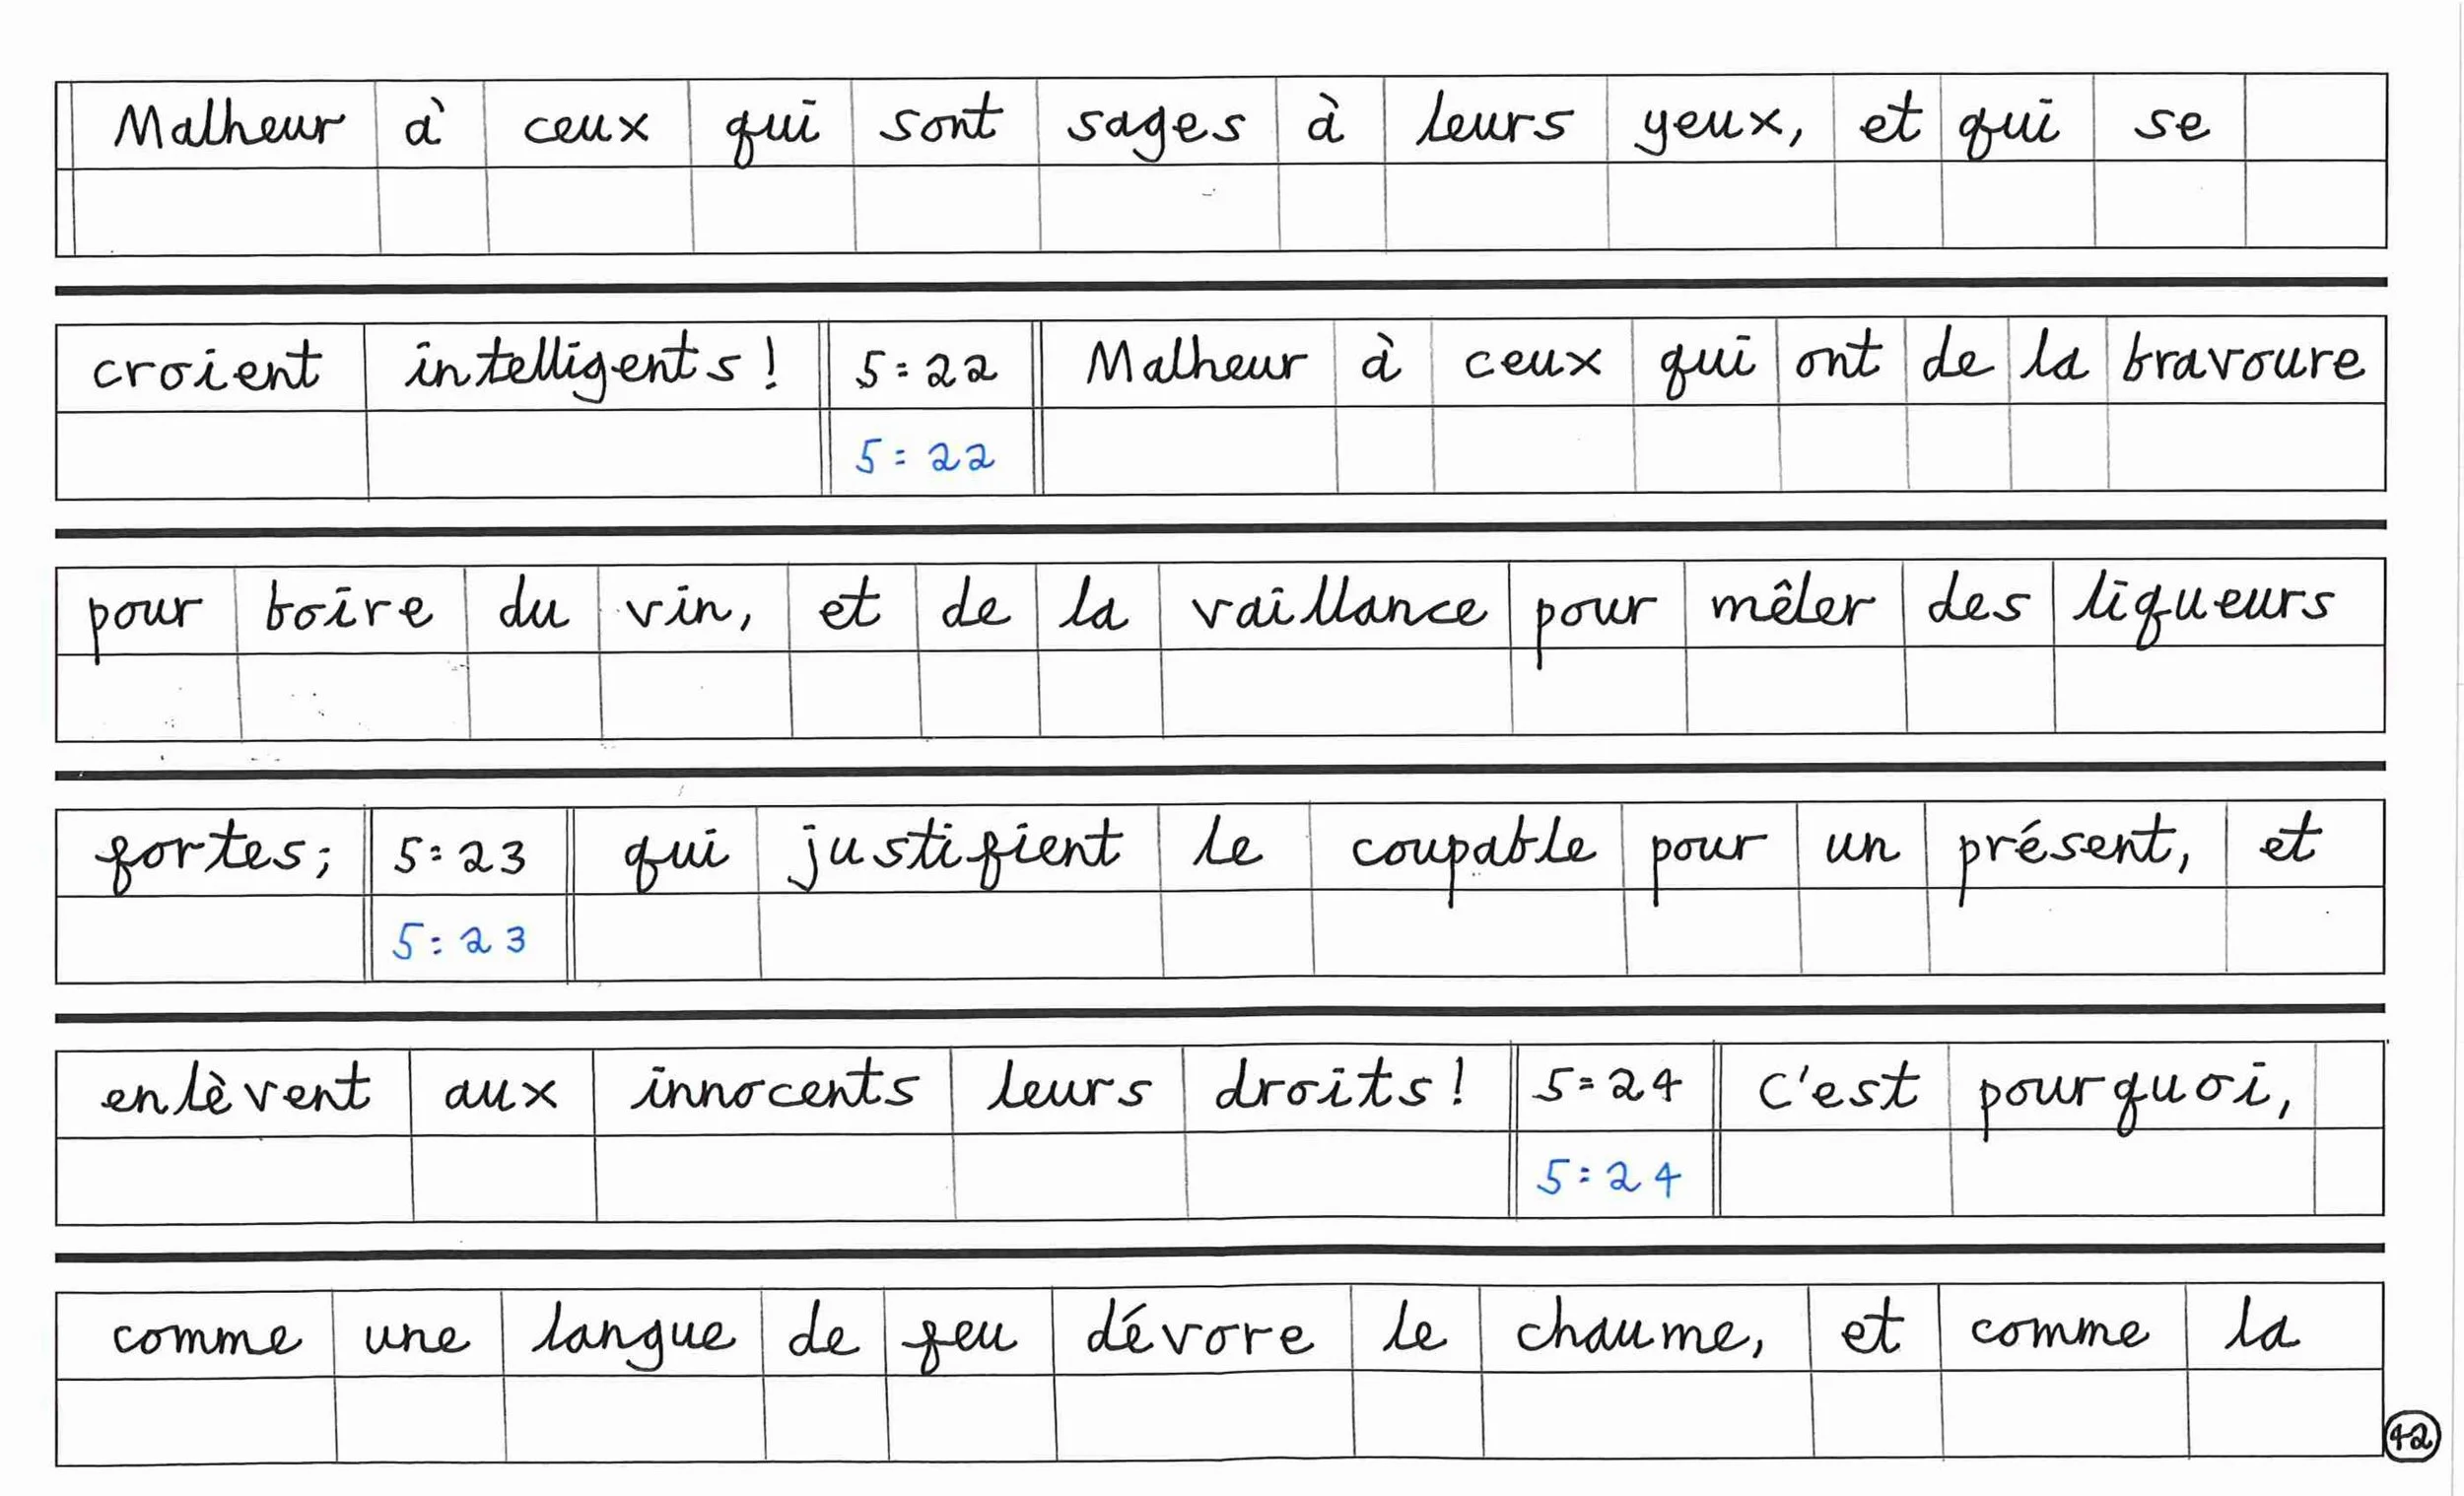 Malheur à ceux qui sont sages à leurs yeux, et qui se
croient intelligents! 5:22 Malheur à ceux qui ont de la bravoure
5:22
pour boire du vin, et de la vaillance pour mêler des liqueurs
fortes; 5:23 qui justifient le coupable pour un présent, et
5:23
enlèvent aux innocents leurs droits! 5:24 C'est pourquoi,
5:24
comme une langue de feu dévore le chaume, et comme la
42